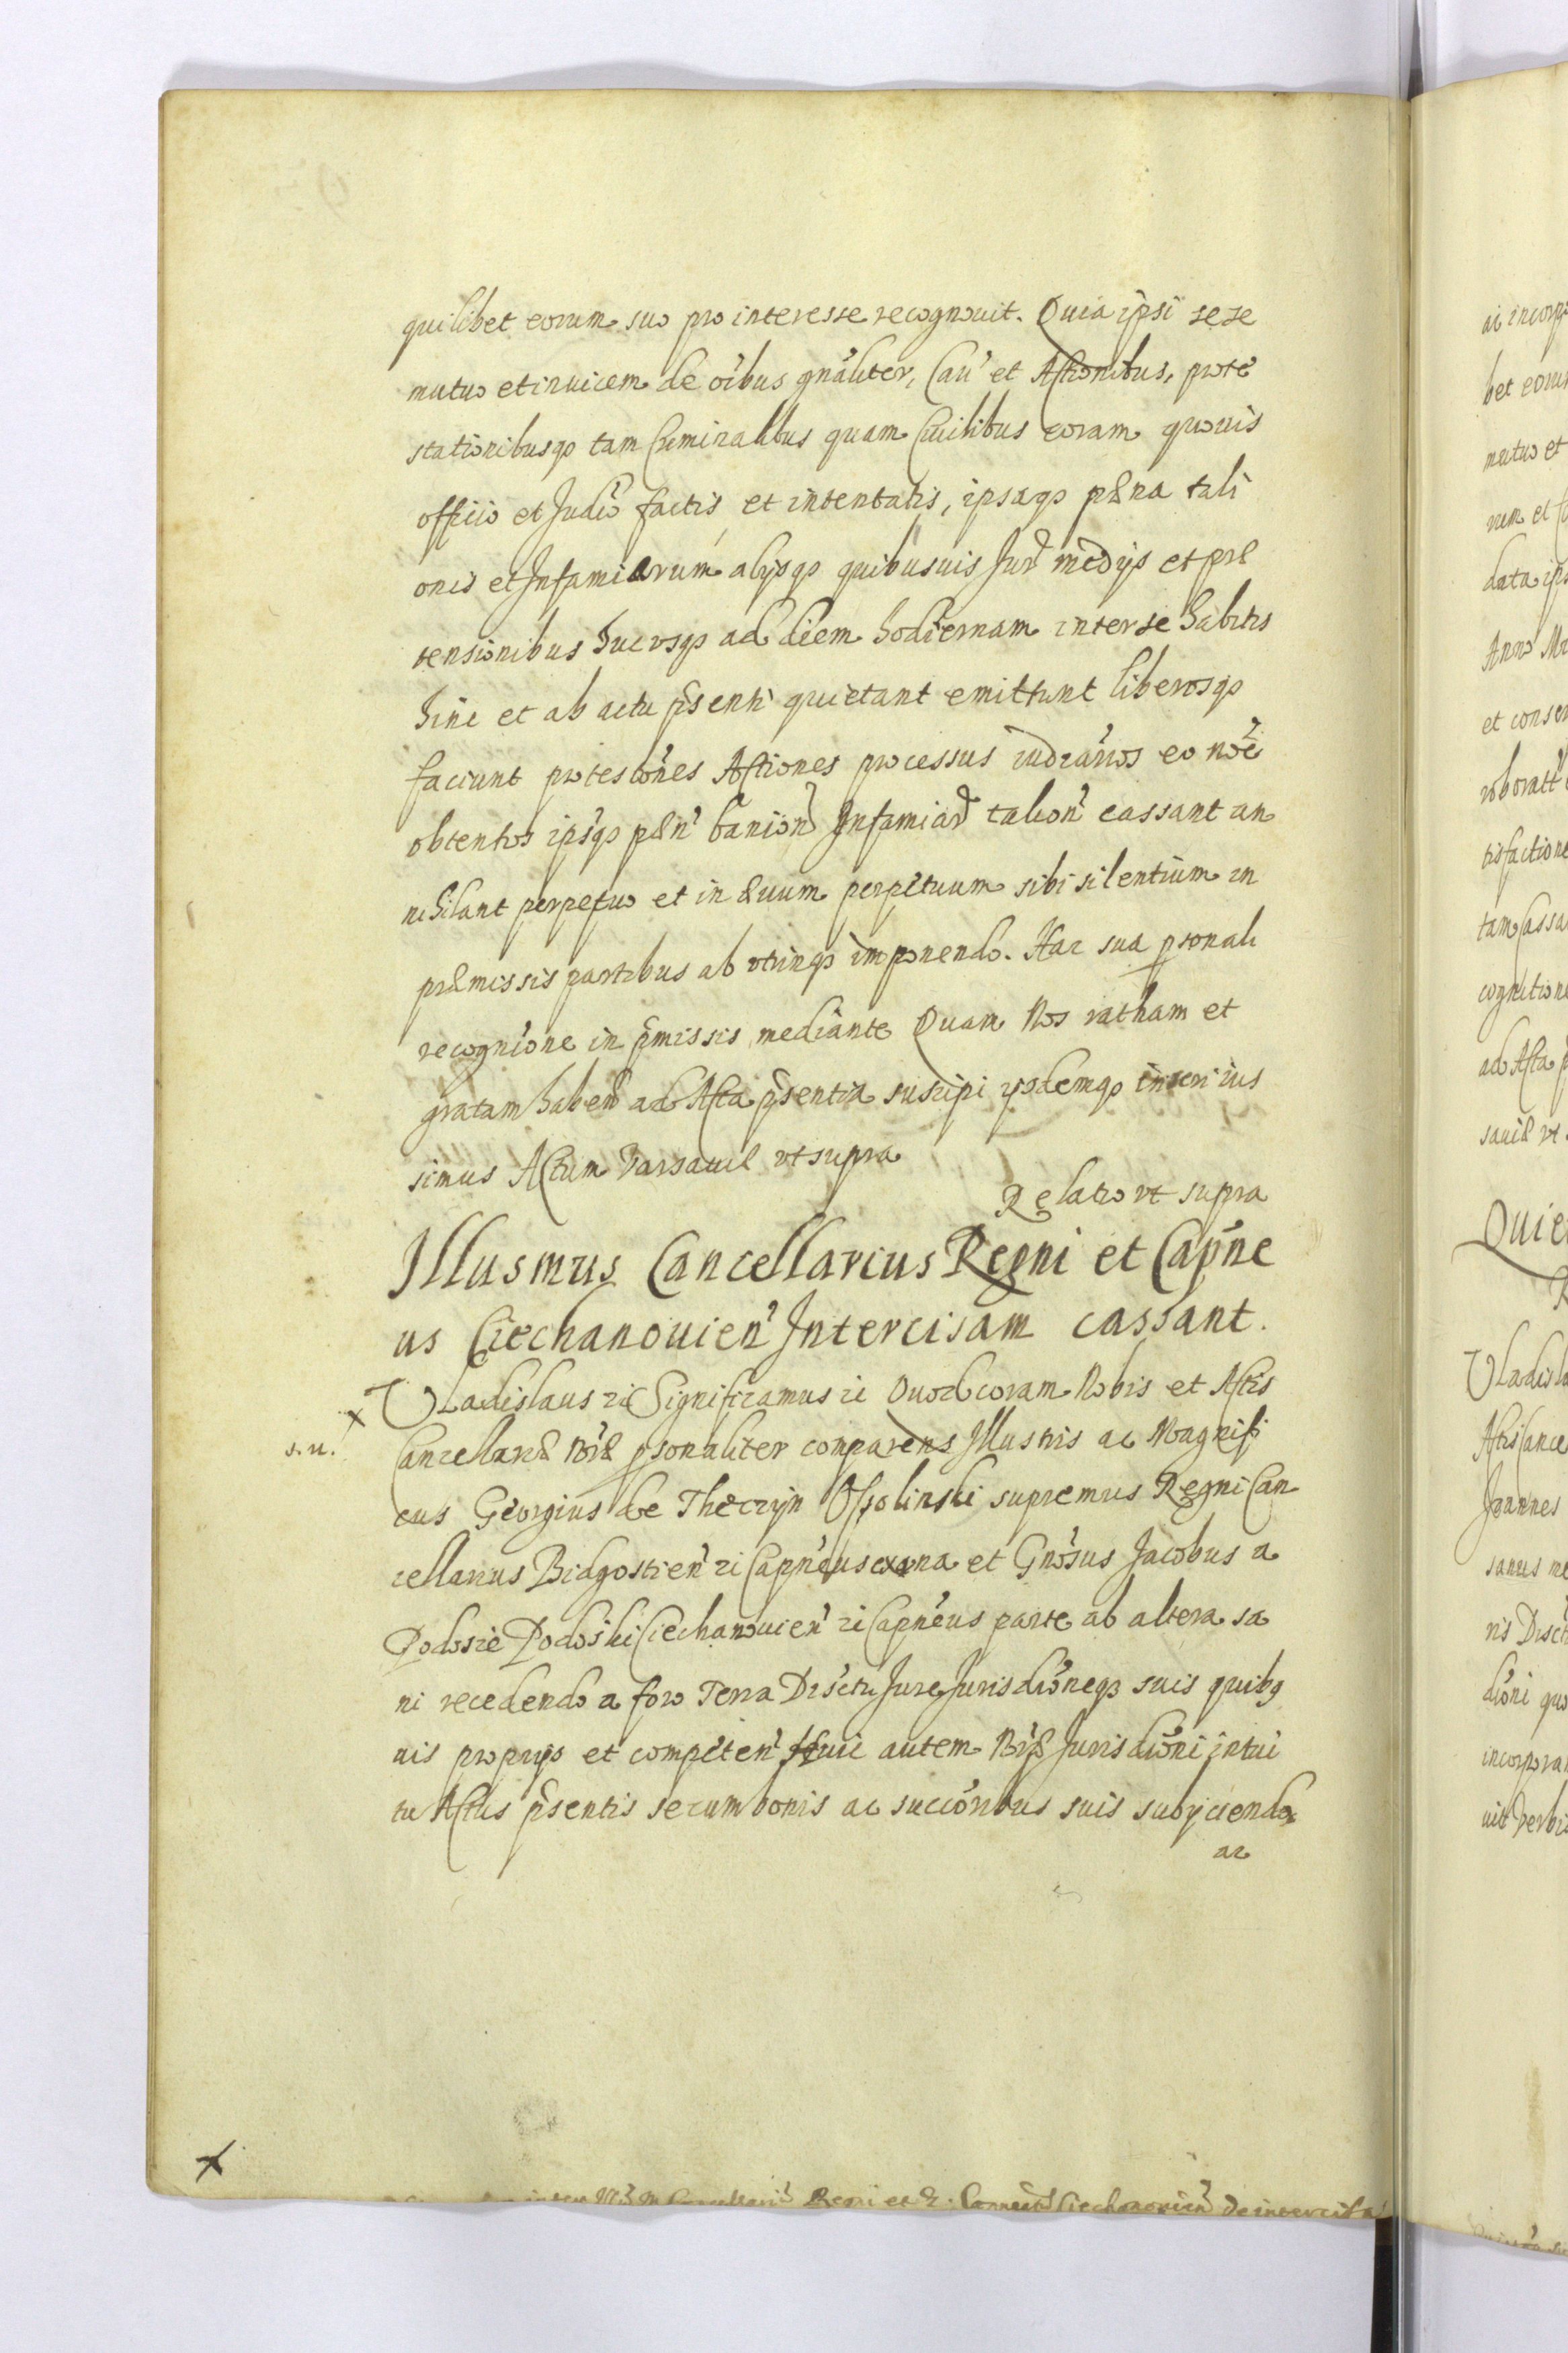 quilibet eorum suo pro interesse recognouit. Quia ipsi sese
mutuo et inuicem de oíbus gnáliter, Cau' et Actionibus, prote
stationibusqȝ tam Criminalibus quam Ciuilibus coram quouis
officio et Judió factis et intentatis, ipsaqȝ pæna tali
onis et Infamiarum alijsqȝ quibusuis Jur medijs et præ
tensionibus hucusqȝ ad diem hodiernam inter se habitis
hinc et ab actu pñsenti quietant emittunt liberosqȝ
faciunt protestónes Actiones processus iudiários eo nóe
obtentos ipsqȝ pæn' banion' Infamiar talion' cassant an
nihilant perpetuo et in æuum perpetuum sibi silentium in
præmissis partibus ab vtrinqȝ imponendo. Hac sua psonali
recognióne in pmissis mediante Quam Nos ratham et
gratam haben' ad Acta pñsentia suscipi ijsdemqȝ inseri ius
simus Actum Varsauiæ vt supra
Relatio vt supra
Illusmus Cancellarius Regni et Capne
us Ciechanouien' Intercisam cassant.
Vladislaus zc Significamus zc Quod coram Nobis et Actis
s.n. Cancellariæ Nræ psonaliter comparens Illustris ac Magnifi
cus Georgius de Theczyn Ossolinski supremus Regni Can
cellarius Bidgostien' zc Capnéus ex una et Gnósus Jacobus a
Podosie Podoski Ciechanouien' zc Capnéus parte ab altera sa
ni recedendo a foro Terra Districtu Jure Jurisdiónеqȝ suis quibus
uis proprijs et competen' Huic autem Nræ Jurisdióni intui
tu Actus pñsentis se cum bonis ac succóribus suis subijciendo
ac
Regni et Ciechanouien' de intercisa